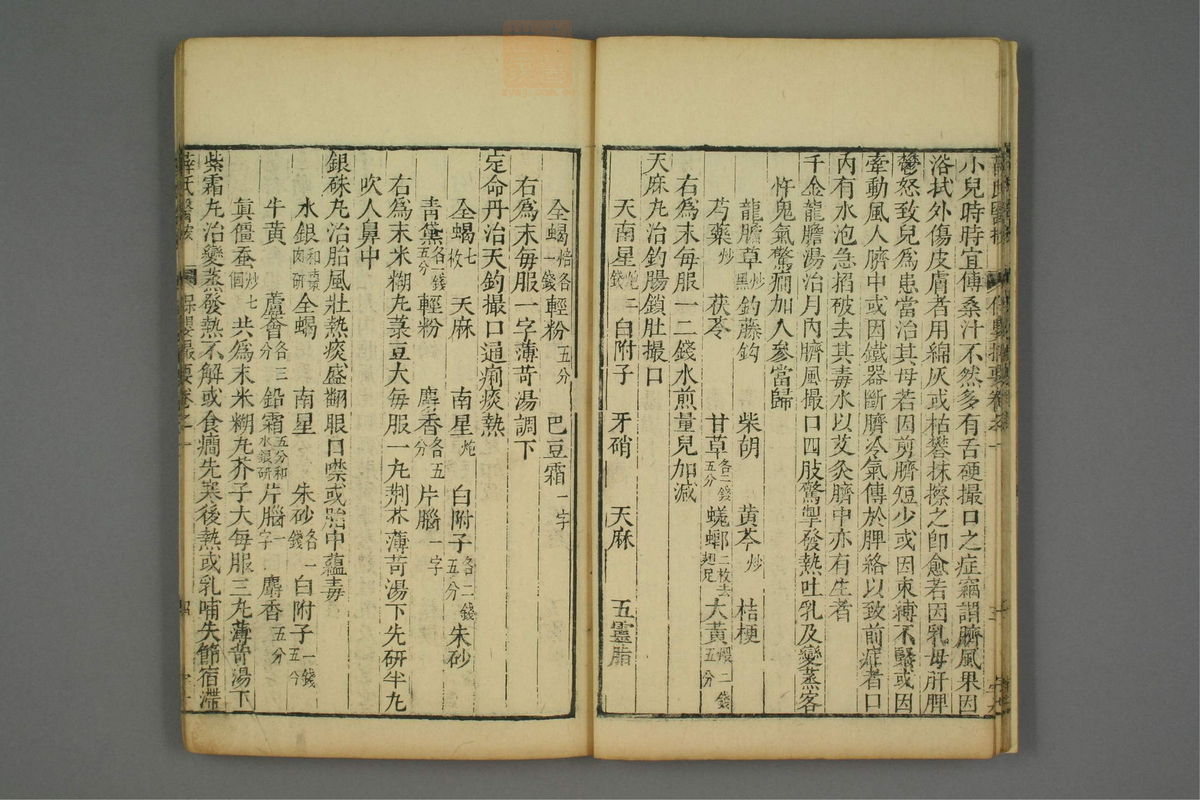 小兒時時宜傅桑汁不然多有舌硬撮口之症竊謂臍風果因
浴拭外傷皮膚者用綿灰或枯礬抹擦之即愈若因乳母肝脾
鬱怒致兒爲患當治其母若因剪臍短少或因束縛不緊或因
牽動風入臍中或因鐵器斷臍冷氣傳於脾絡以致前症者口
內有水泡急掐破去其毒水以艾灸臍中亦有生者
千金龍膽湯治月內臍風撮口四肢驚掣發熱吐乳及變蒸客
忤鬼氣驚癇加人參當歸
龍膽草炒黑 釣藤鈎 柴胡 黄芩炒 桔梗
芍藥炒 茯苓 甘草各二錢五分 蜣螂二枚去翅足 大黄煨二錢五分
右爲末毎服一二錢水煎量兒加減
天麻丸治釣腸鎖肚撮口
天南星炮二錢 白附子 牙硝 天麻 五靈脂
全蝎焙各一錢 輕粉五分 巴豆霜一字
右爲末毎服一字薄苛湯調下
定命丹治天釣撮口通痢痰熱
全蝎七枚 天麻 南星炮 白附子各二錢五分 朱砂
青黛各一錢五分 輕粉 麝香各五分 片腦一字
右爲末米糊丸菉豆大毎服一丸荆芥薄苛湯下先研半丸
吹入鼻中
銀硃丸治胎風壯熱痰盛翻眼口噤或胎中蘊毒
水銀和棗肉研 全蝎 南星 朱砂各一錢 白附子一錢五分
牛黄 蘆薈各三分 鉛霜五分和水銀研 片腦一字 麝香五分
眞僵蚕炒七個 共爲末米糊丸芥子大毎服三丸薄苛湯下
紫霜丸治變蒸發熱不解或食癇先寒後熱或乳哺失節宿滯
薛氏醫按 保嬰撮要卷之一